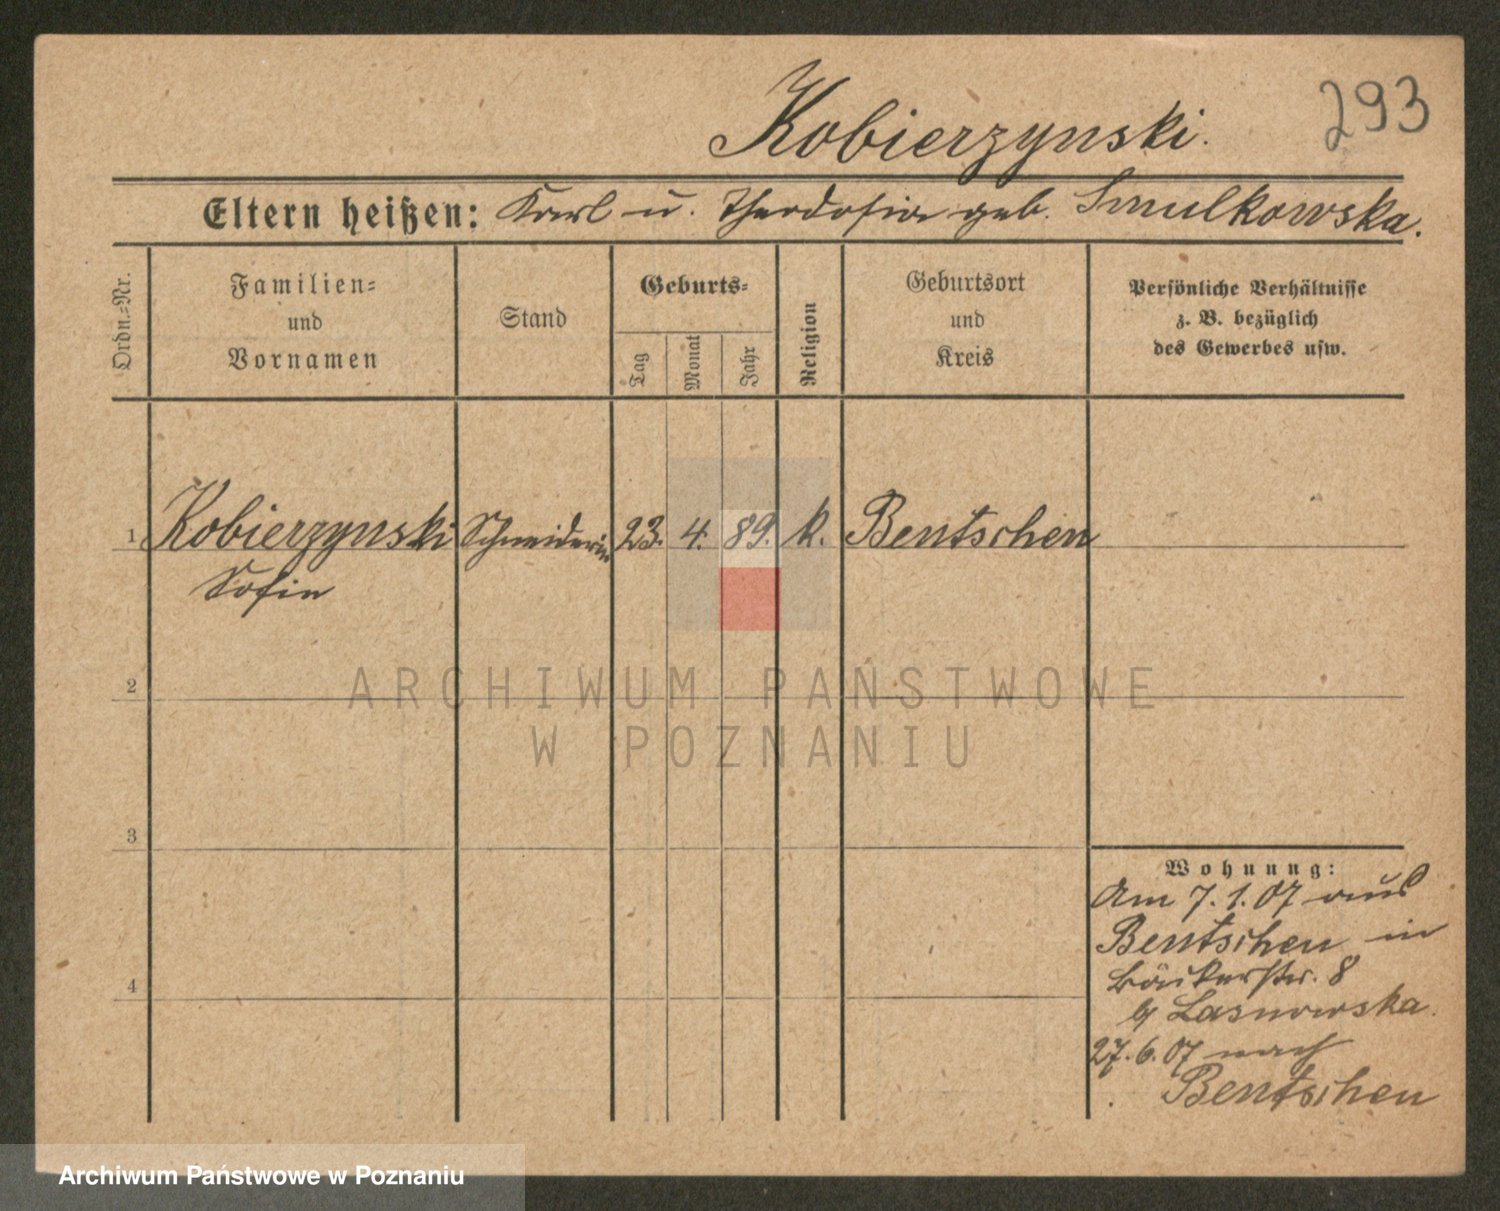 293
Kobierzynski.
Eltern heißen: Karl u. Theodosia geb. Smulkowska.
Ordn.-Nr.
Familien-
und
Vornamen
Stand
Geburts-
Tag
Monat
Jahr
Religion
Geburtsort
und
Kreis
Persönliche Verhältnisse
z. B. bezüglich
des Gewerbes usw.
1 Kobierzynski Schneiderin 23. 4. 89. k. Bentschen
Sofie
2
ARCHIWUM PAŃSTWOWE
W POZNANIU
3
Wohnung:
Am 7.1.07 aus
Bentschen in
Bäckerstr. 8
4
b/ Lasnowska.
27.6.07 nach
Bentschen
Archiwum Państwowe w Poznaniu